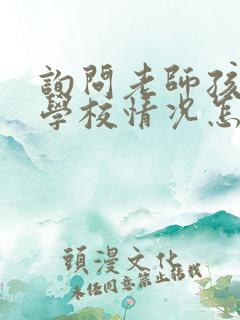 詢問老師孩
學校情況怎
頭漫文化
未經同意禁止轉載